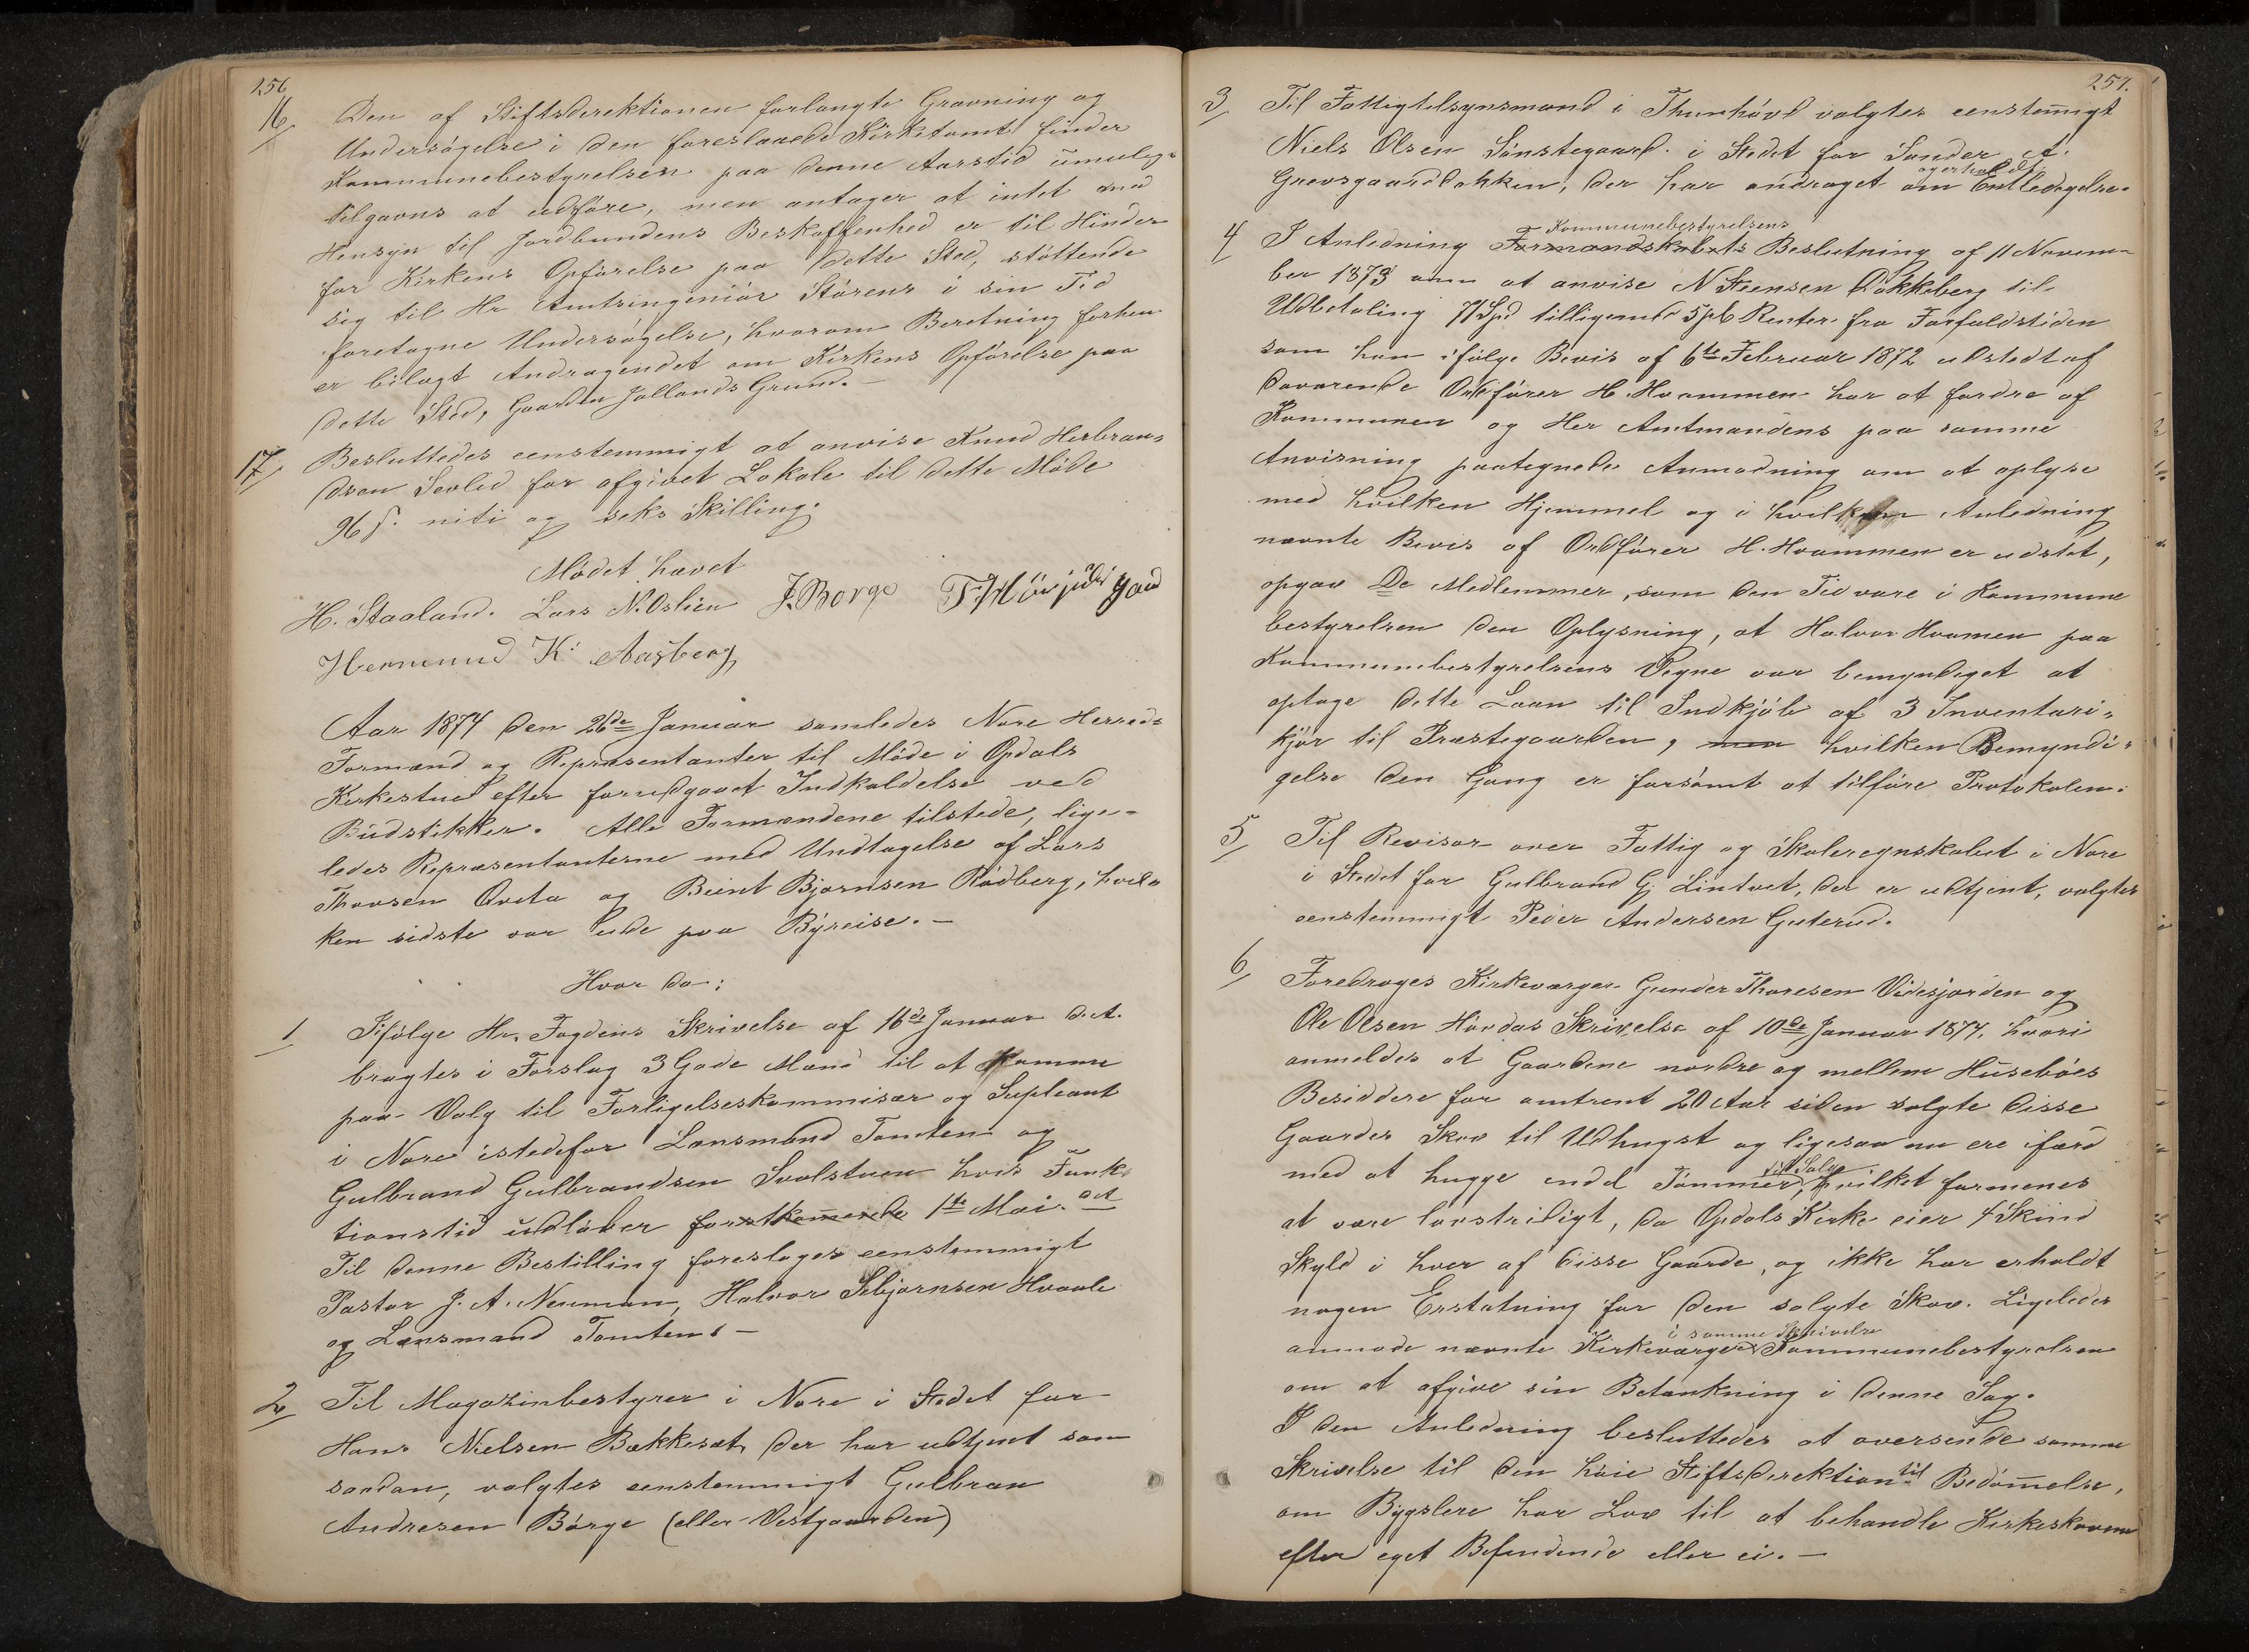 256
16/ Den af Stiftsdirektionen forlangte Gravning og
Undersøgelse i den foreslaaede Kirketomt finder
Kommunebestyrelsen paa denne Aarstid umulig
tilgavns at udføre, men antager at intet med
Hensyn til Jordbundens Beskaffenhed er til Hinder
for Kirkens Opførelse paa dette Sted, støttende
sig til Hr Amtsingeniør Størens i sin Tid
foretagne Undersøgelse, hvorom Beretning forhen
er bilagt Andragendet om Kirkens Opførelse paa
dette Sted, Gaarden Jøllands Grund. —
17/ Besluttedes eenstemmigt at anvise Knud Herbran-
dsen Sevlid for afgivet Lokale til dette Møde
96 s. niti og seks Skilling.
Mødet hævet
H. Staaland. Lars N. Oslien J. Borge
Hermund K. Aasberg
Aar 1874 den 26de Januar samledes Nore Herreds
Formænd og Repræsentanter til Møde i Opdals
Kirkestue efter forudgaaet Indkaldelse ved
Budstikker. Alle Formændene tilstede, lige-
ledes Repræsentanterne med Undtagelse af Lars
Thorsen Qveta og Beint Bjørnsen Rødberg, hvil-
ken sidste var ude paa Byreise. —
Hvor da:
1/ Ifølge Hr. Fogdens Skrivelse af 16de Januar d.A.
bragtes i Forslag 3 Gode Mænd til at komme
paa Valg til Forligelseskommisær og Supleant
i Nore istedefor Lænsmand Tomten og
Gulbrand Gulbrandsen Svalstuen hvis Funk-
tionstid udløber førstkommende 1ste Mai. d.A
Til denne Bestilling foresloges eenstemmigt
Pastor J. A. Neuman, Halvor Sebjørnsen Hvaale
og Lænsmand Tomten. —
2/ Til Magazinbestyrer i Nore i Stedet for
Hans Nielsen Bækkesæt, der har udtjent som
saadan, valgtes eenstemmigt Gulbran
Andresen Børge (eller Vestgaarden)
257.
3/ Til Fattigtilsynsmand i Thunhøvd valgtes eenstemigt
Niels Olsen Sønstegaard. i Stedet for Sander A.
og erholdt
Grevsgaardbakken, der har andraget om Entledigelse.
Kommunebestyrelsens
4/ I Anledning Formandskabets Beslutning af 11 Novem-
ber 1873 om at anvise N Steensen Kokkeberg til
Udbetaling 71 Spd tilligemed 5 pC Renter fra Forfaldstiden
som han ifølge Bevis af 6te Februar 1872 udstedt af
daværende Ordfører H. Hvammen har at fordre af
Kommunen og Her Amtmandens paa samme
Anvisning paategnede Anmodning om at oplyse
med hvilken Hjemmel og i hvilken Anledning
nævnte Bevis af Ordfører H. Hvammen er udstet,
opgav De Medlemmer, som den Tid vare i Kommune
bestyrelsen den Oplysning, at Halvor Hvamen paa
Kommunebestyrelsens Vegne var bemyndiget at
optage dette Laan til Indkjøb af 3 Inventari-
kjør til Præstegaarden, men hvilken Bemyndi-
gelse den Gang er forsømt at tilføre Protokolen.
5/ Til Revisor over Fattig og Skoleregnskabet i Nore
i Stedet for Gulbrand G. Lintvet, der er udtjent, valgtes
eenstemmigt Peder Andersen Guterud.
6/ Foredroges Kirkeværger Gunder Thoresen Videsjorden og
Ole Olsen Hørdas Skrivelse af 10de Januar 1874, hvori
anmeldes at Gaardene nordre og mellem Husebøes
Besiddere for omtrent 20 Aar siden solgte disse
Gaardes Skov til Udhugst og ligesaa nu ere ifærd
til Salg
med at hugge endel Tømmer, hvilket formenes
at være lovstridigt, da Opdals Kirke eier 4 Skind
Skyld i hver af disse Gaarde, og ikke har erholdt
nogen Erstatning for den solgte Skov. Ligeledes
i samme Skrivelse
anmode nævnte Kirkeværger Kommunebestyrelsen
om at afgive sin Betænkning i denne Sag.
I den Anledning besluttedes at oversende samme
Skrivelse til den høie Stiftsdirektion til Bedømelse,
om Bygslere har Lov til at behandle Kirkeskovene
efter eget Befindende eller ei. —